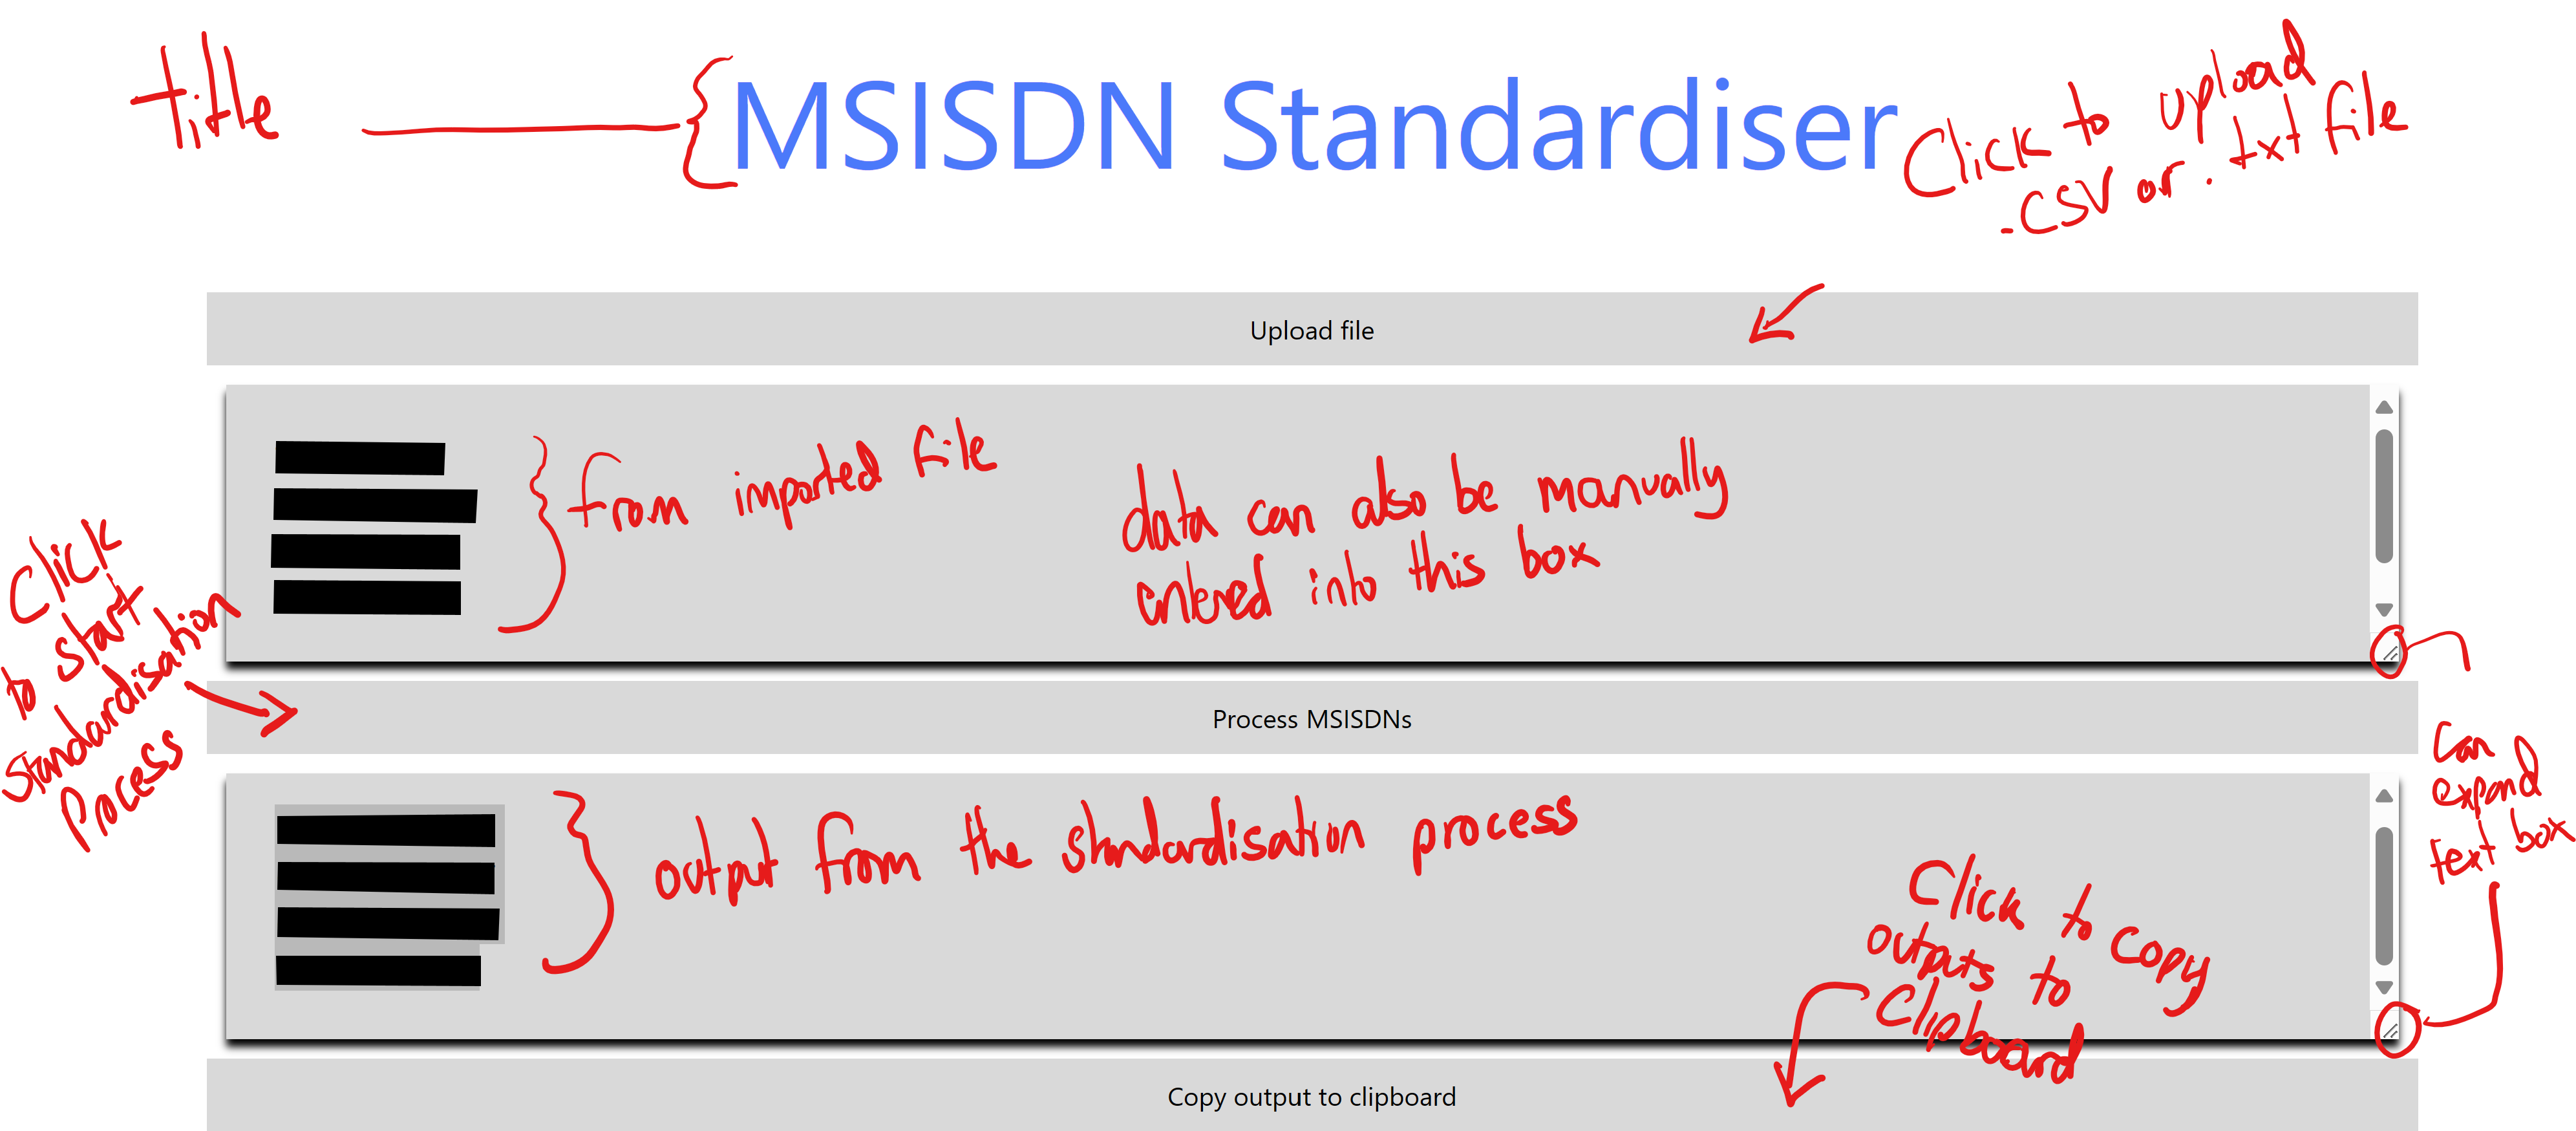 Title
MSISDN Standardiser
Click to upload
.CSV or .txt file
Upload file
from imported file
data can also be manually
entered into this box
Click
to start
Standardisation
Process
Process MSISDNs
can
expand
text box
output from the standardisation process
Click to copy
outputs to
Clipboard
Copy output to clipboard